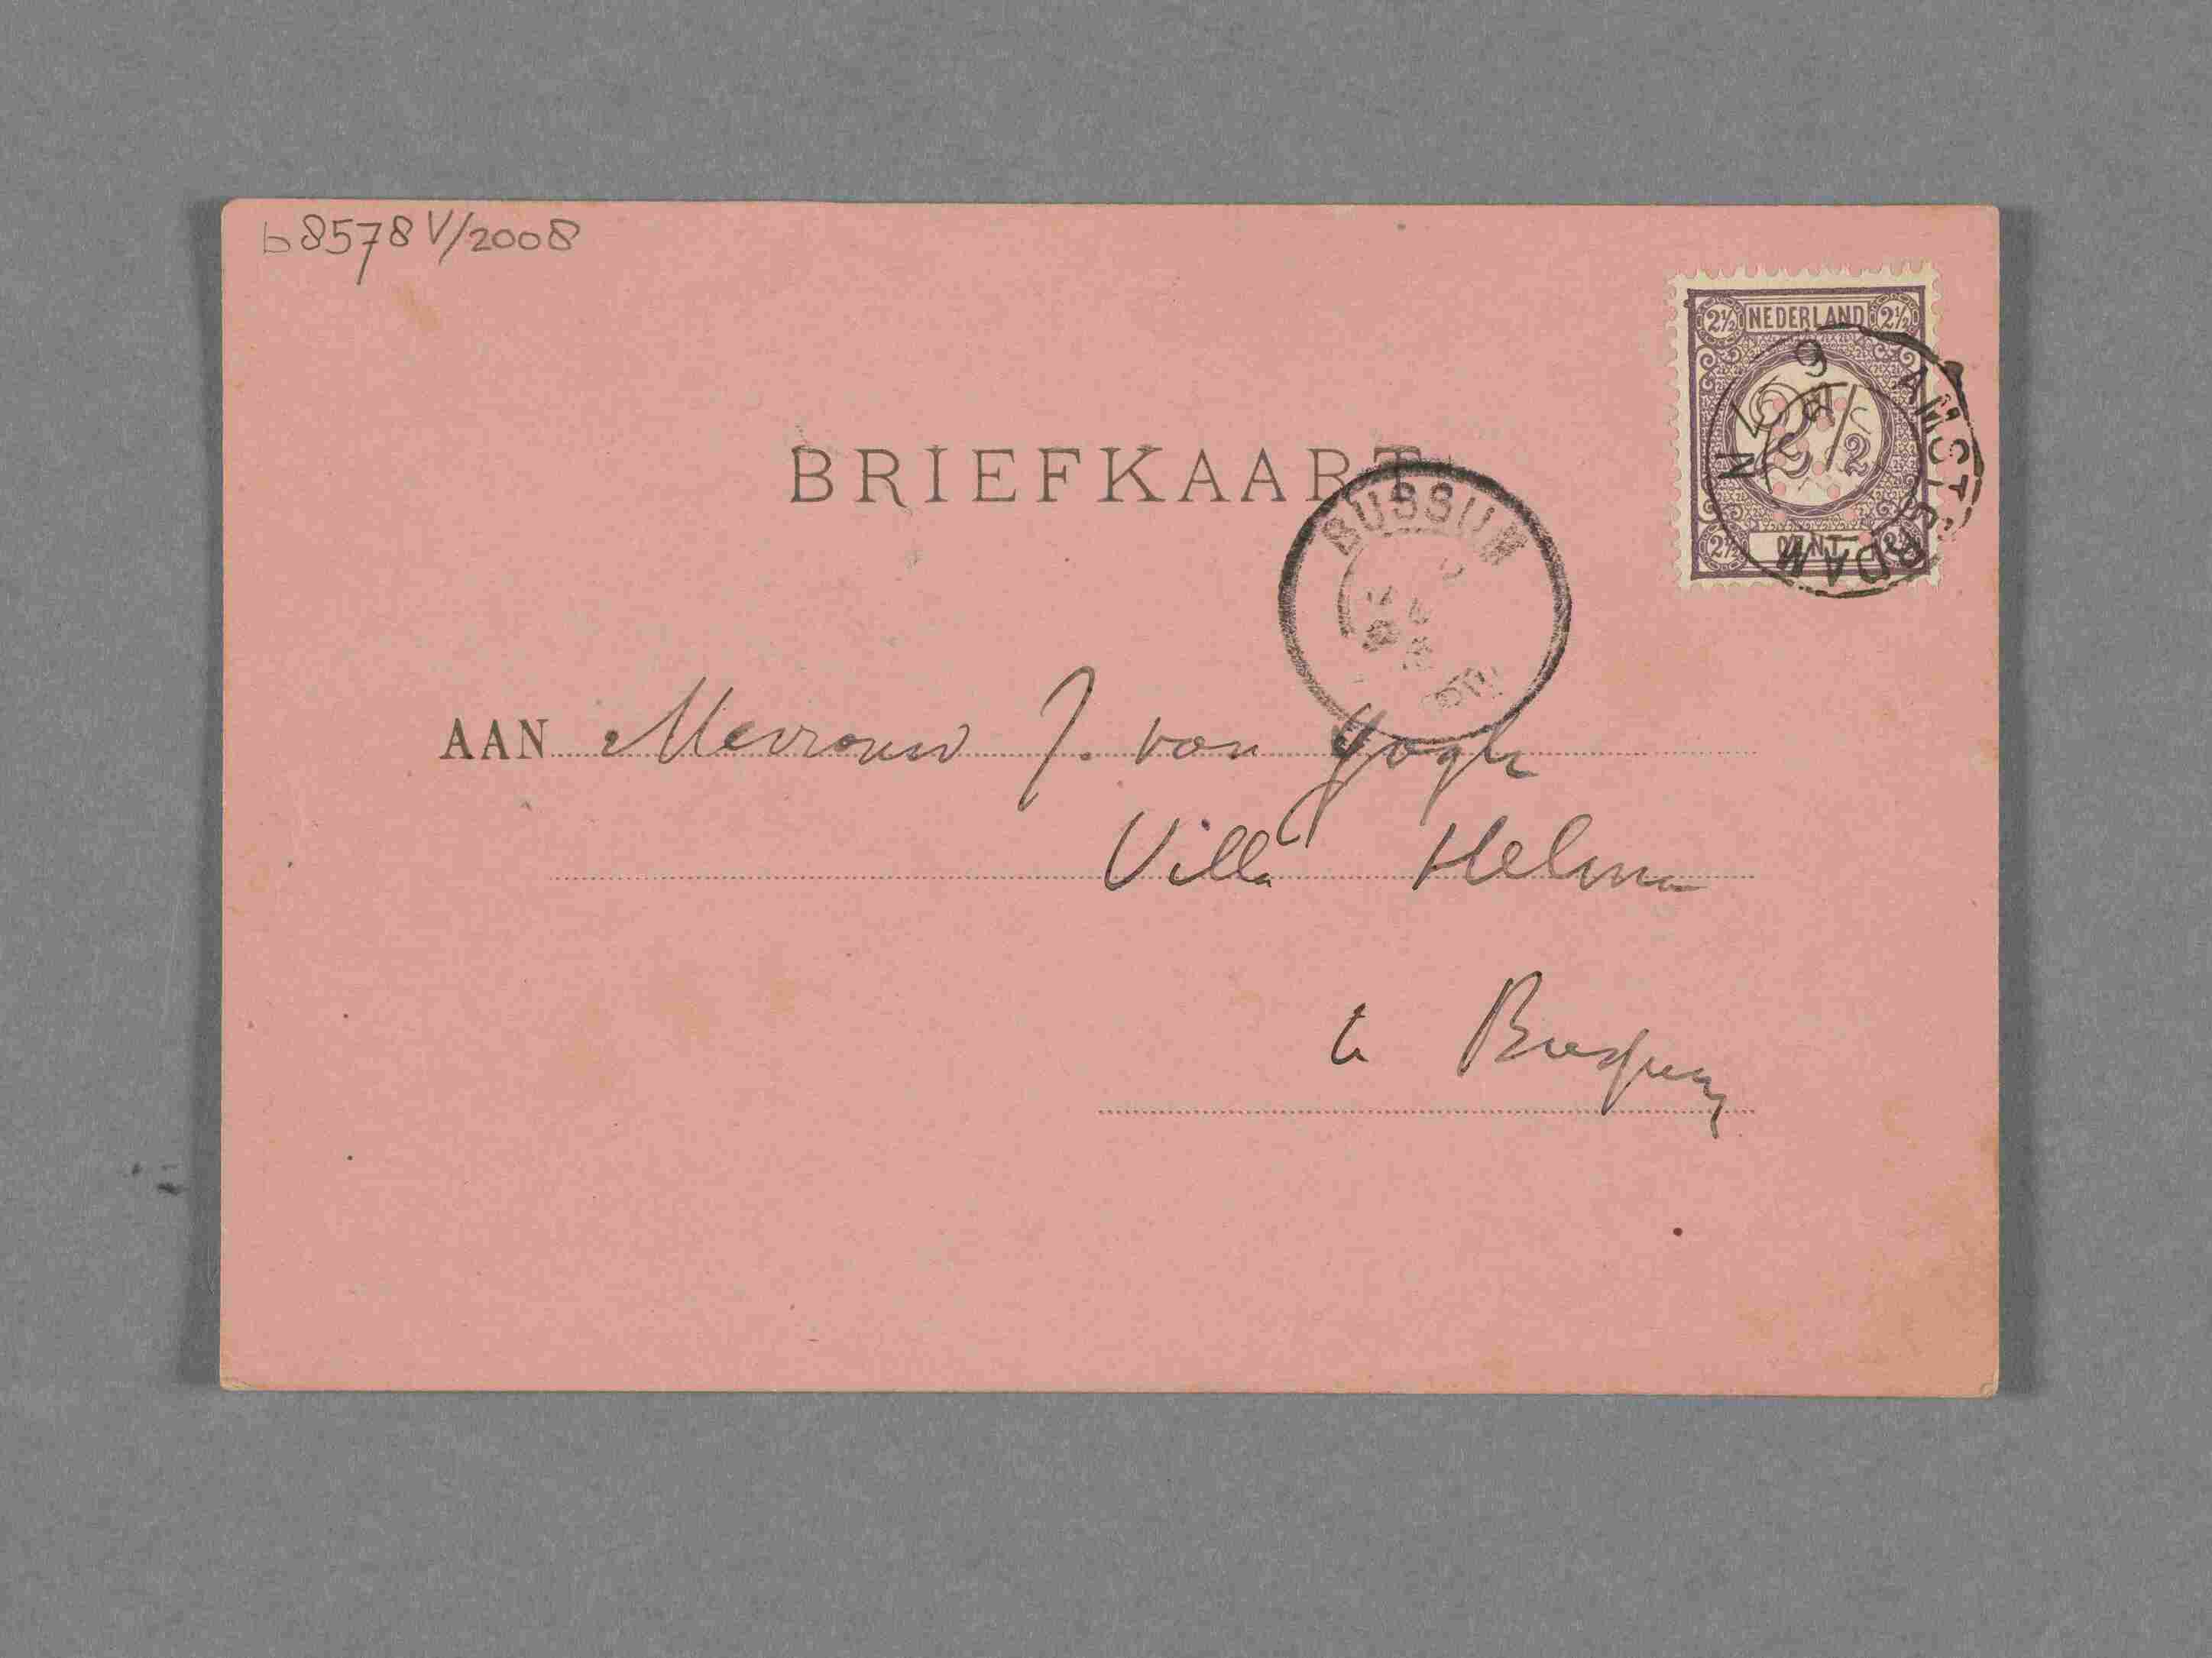 b8578 V/2008
2½ NEDERLAND 2½
2½
2½ CENT 2½
AMSTERDAM
BRIEFKAART
BUSSUM
AAN Mevrouw J. van Gogh
Villa Helma
te Bussum